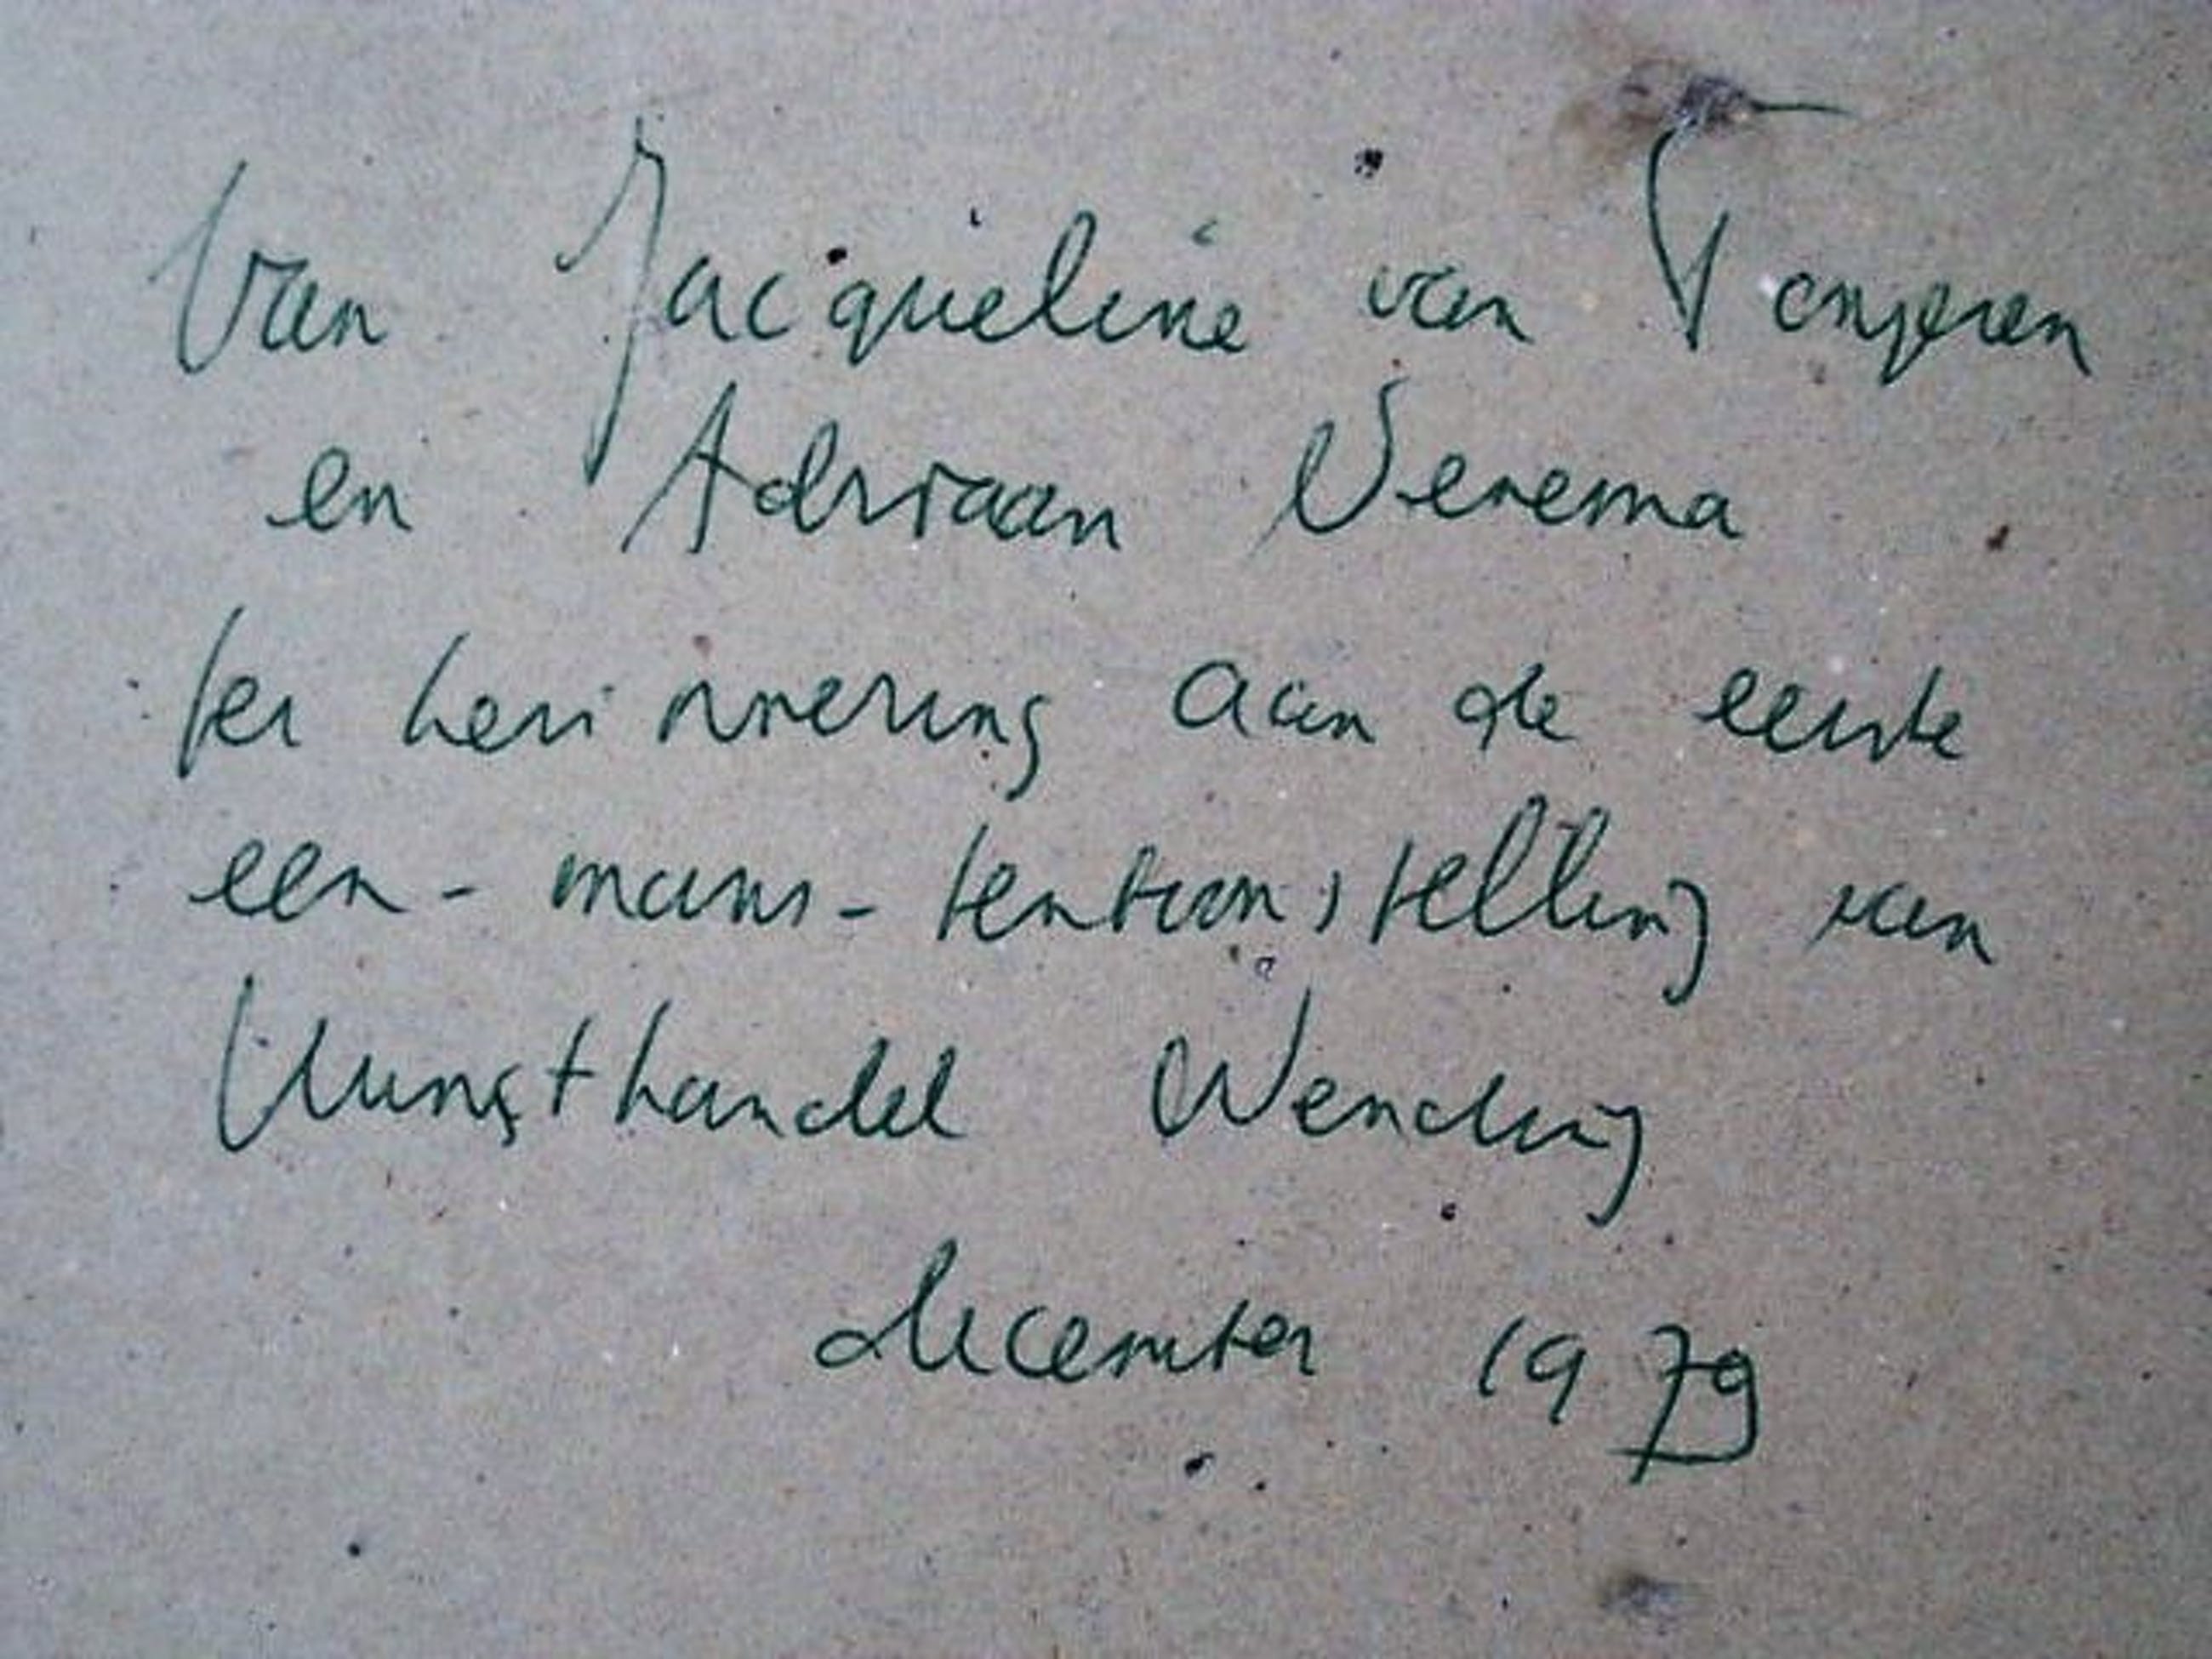 Van Jacqueline van Tongeren
en Adriaan Venema
ter herinnering aan de eerste
een-mans-tentoonstelling van
Kunsthandel Wending
december 1979